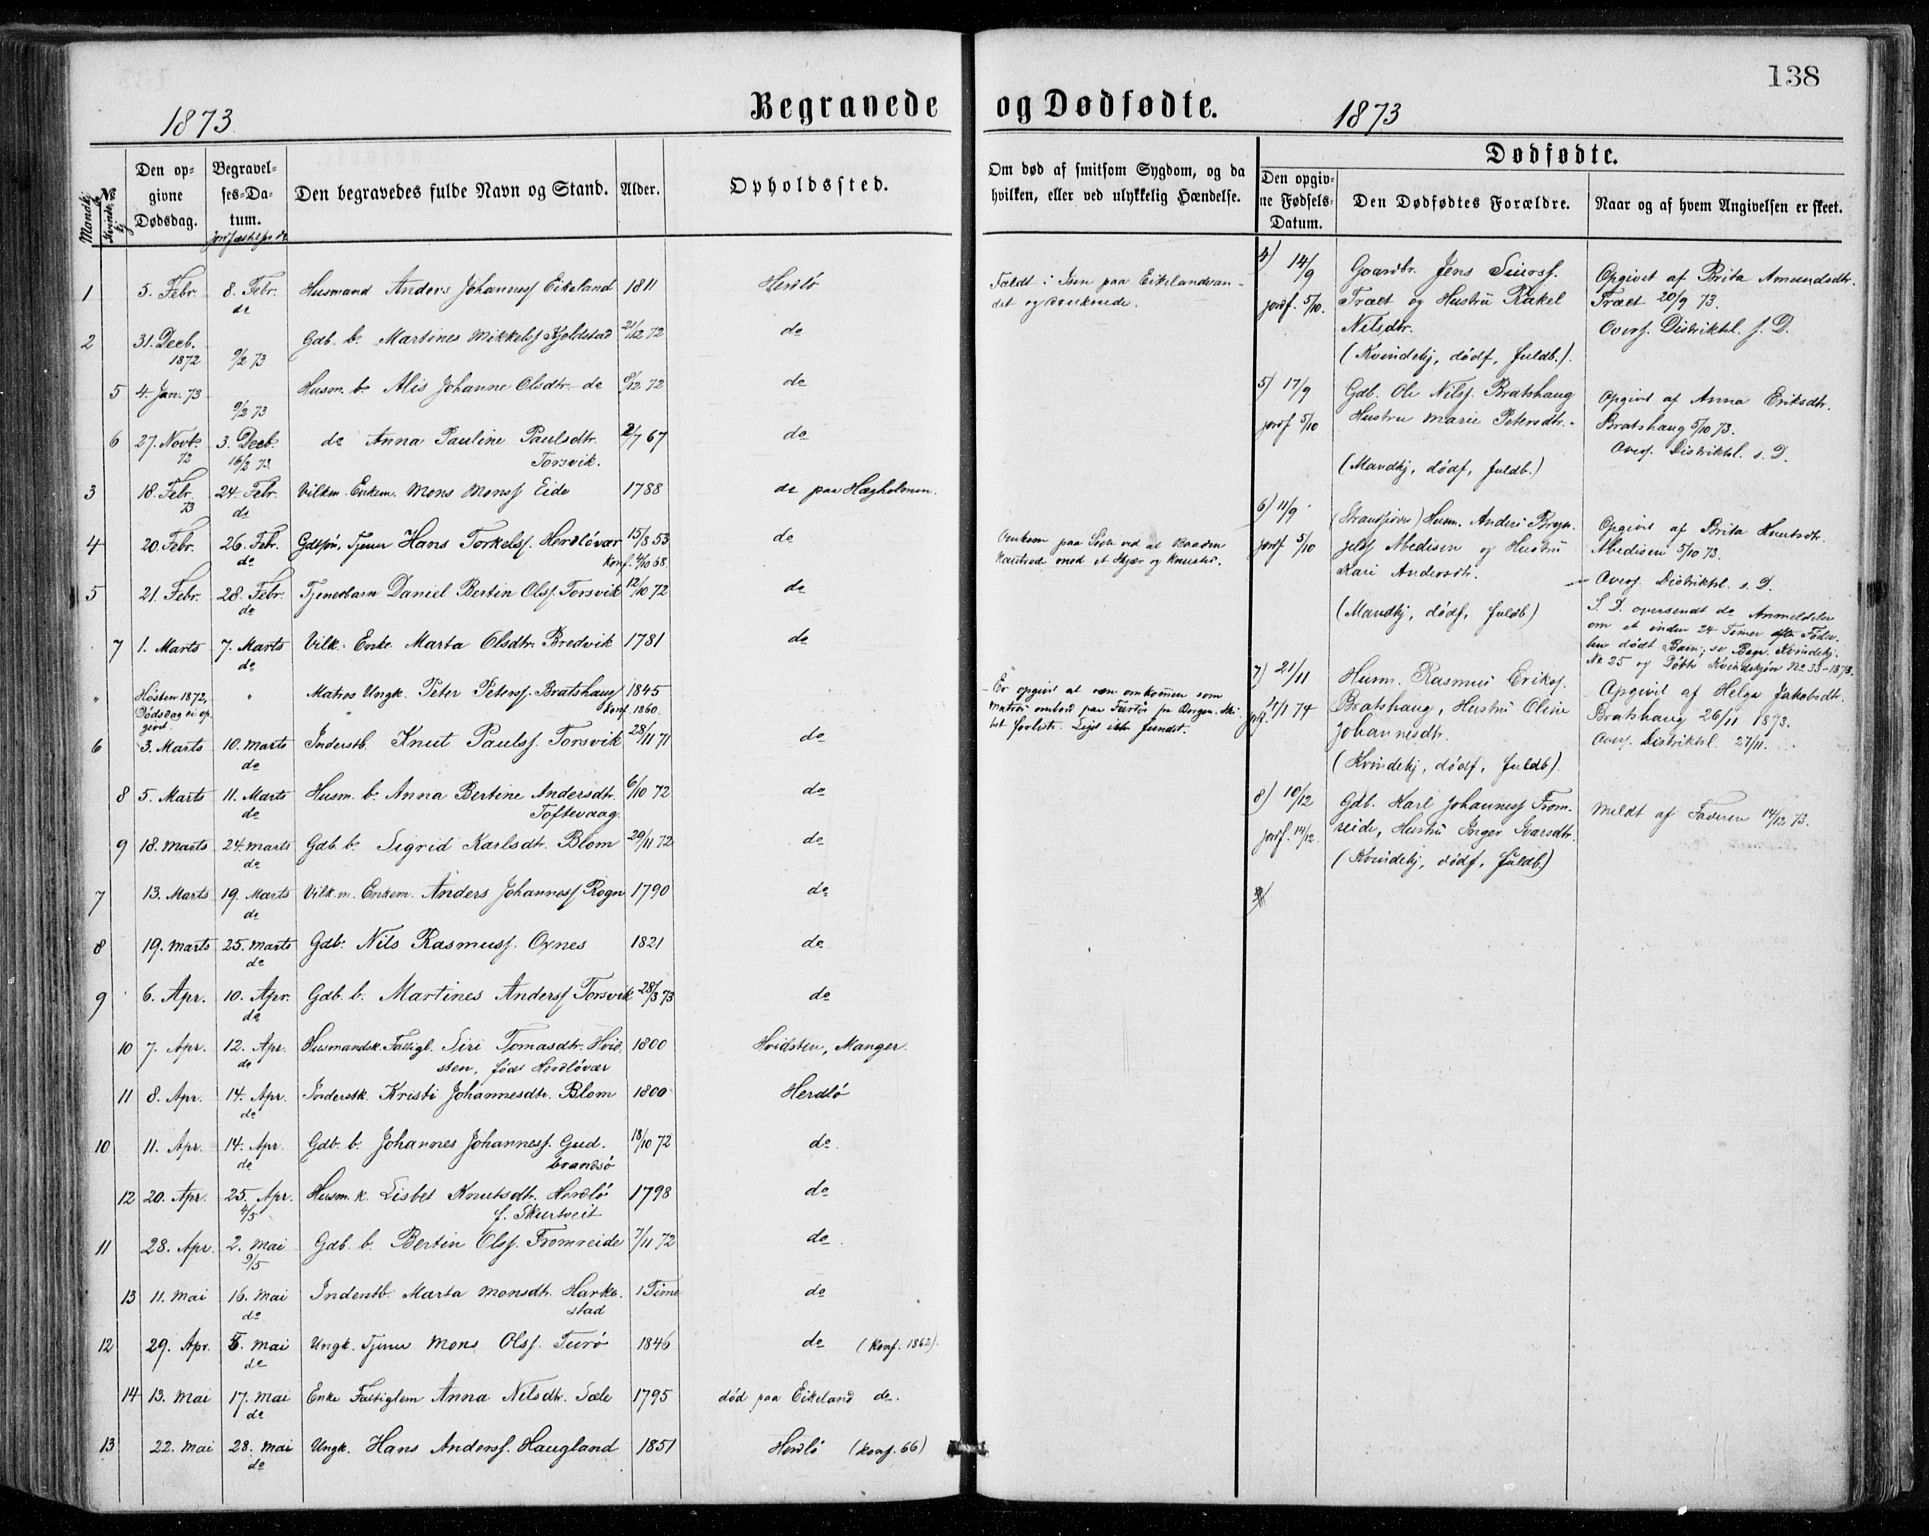 138
Begravede og Dødfødte.
1873
1873
Mandkj.
No
Kvindekj.
Den opgivne Dødsdag.
Begravelses-Datum.
Jordfæstelses do
Den begravedes fulde Navn og Stand.
Alder.
Opholdssted.
Om død af smitsom Sygdom, og da hvilken, eller ved ulykkelig Hændelse.
Dødfødte.
Den opgivne Fødsels-Datum.
Den Dødfødtes Forældre.
Naar og af hvem Angivelsen er skeet.
1 5. Febr. 8. Febr. Husmand Anders Johannesf Eikeland 1811 Herdlø Faldt i Isen paa Eikelandvan-
do det og druknede.
2 31. Decb. Gdb. b. Martines Mikkelsf Kjoldstad 21/12 72 do
1872 9/2 73
5 4. Jan. 73 Husm. b. Alis Johanne Olsdtr. do 9/12 72 do
9/2 73
6 27. Novb. 3. Decb. do Anna Pauline Paulsdtr. 2/7 67 do
72 16/2 73 Torsvik.
3 18. Febr. 24. Febr. Vilkm. Enkem. Mons Monsf Eide 1788 do paa Hægholmen.
73 do
4 20. Febr. 26. Febr. Gdbsøn, Tjener Hans Torkelsf. Herdløvær 15/8 53 do Omkom paa Søen ved at Baaden
do Konf. 4/10 68. kantrede mod et Skjær og knustes.
5 21. Febr. 28. Febr. Tjenerbarn Daniel Bertin Olsf. Torsvik 12/10 72 do
do
7 1. Marts 7. Marts Vilk. Enke Marta Olsdtr. Bredvik 1781 do
do
" Høsten 1872, " Matros Ungk. Peter Petersf. Bratshaug 1845 Er opgivet at være omkommen som
Dødsdag ei op- Konf. 1860. Matros ombord paa Fartøi fra Bergen. Ski-
givet. bet forlist. Liget ikke fundet.
6 3. Marts 10. Marts Inderstb. Knut Paulsf. Torsvik 28/11 71 do
do
8 5. Marts 11. Marts Husm. b. Anna Bertine Andersdtr. 6/10 72 do
do Toftevaag.
9 18. Marts 24. Marts Gdb. b. Sigrid Karlsdtr. Blom 29/11 72 do
do
7 13. Marts 19. Marts Vilk. m. Enkem. Anders Johannesf Rogn 1790 do
do
8 19. Marts 25. Marts Gdb. Nils Rasmusf. Oxnes 1821 do
do
9 6. Apr. 10. Apr. Gdb. b. Martines Andersf Torsvik 28/3 73 do
do
10 7. Apr. 12. Apr. Husmandsk. Fattigl. Siri Tomasdtr. Hvid- 1800 Hvidsten, Manger.
do sten, født Herdløvær
11 8. Apr. 14. Apr. Inderstk. Kristi Johannesdtr. Blom 1800 Herdlø
do
10 11. Apr. 14. Apr. Gdb. b. Johannes Johannesf. Gud- 18/10 72 do
do brandsø
12 20. Apr. 25. Apr. Husm. k. Lisbet Knutsdtr. Herdlø 1798 do
4/5 f. Skurtveit
11 28. Apr. 2. Mai Gdb. b. Bertin Olsf. Fromreide 7/11 72 do
9/5
13 11. Mai 16. Mai Inderstb. Marta Monsdtr. Harke- 1 Time do
do stad
12 29. Apr. 5. Mai Ungk. Tjener Mons Olsf. Turø 1846 do (Konf. 1862).
do
14 13. Mai 17. Mai Enke Fattiglem Anna Nilsdtr. Sæle 1795 død paa Eikeland do.
do
13 22. Mai 28. Mai Ungk. Hans Andersf. Haugland 1851 Herdlø (Konf. 66)
do
4) 14/9 Gaardbr. Jens Siursf. Opgivet af Brita Amundsdtr.
jordf. 5/10. Træt og Hustru Rakel Træt 20/9 73.
Nilsdtr. Overs. Distriktsl. s. D.
(Kvindekj, dødf, fuldb.).
5) 17/9 Gdb. Ole Nilsf. Bratshaug Opgivet af Anna Eriksdtr.
jordf 5/10 Hustru Marie Petersdtr. Bratshaug 5/10 73.
Overs. Distriktsl. s. D.
(Mandkj, dødf, fuldb.)
6) 11/9 (Strandsidder) Husm. Anders Bryn- Opgivet af Brita Knutsdtr.
jordf 5/10 jelsf Medisen og Hustru Medisen 5/10 73.
Kari Andersdtr. Overs. Distriktsl. s. D.
(Mandkj, dødf, fuldb) S. D. oversendt do Anmeldelse
om et inden 24 Timer efter Føds-
len dødt Barn; se Begr. Kvindekj.
No 25 og Døbte Kvindekjøn No 33-1873.
7) 21/11 Husm. Rasmus Eriksf. Opgivet af Helga Jakobsdtr.
jordf. 4/1 74 Bratshaug, Hustru Olive Bratshaug 26/11 1873.
Johannesdtr. Overs. Distriktsl. 27/11.
(Kvindekj, dødf, fuldb).
8) 10/12 Gdb. Karl Johannesf From- Meldt af Faderen 14/12 73.
jordf. 14/12. reide, Hustru Inger Ivarsdtr.
(Kvindekj, dødf, fuldb)